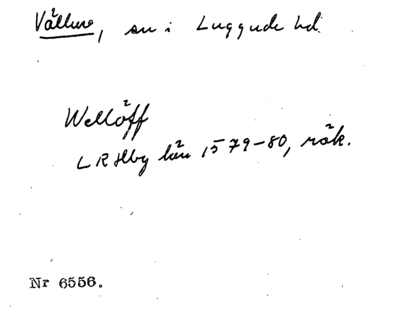 Vällure, sn i Luggude hd.
Wellöff
LR Hbg län 1579-80, räk.
Nr 6556.